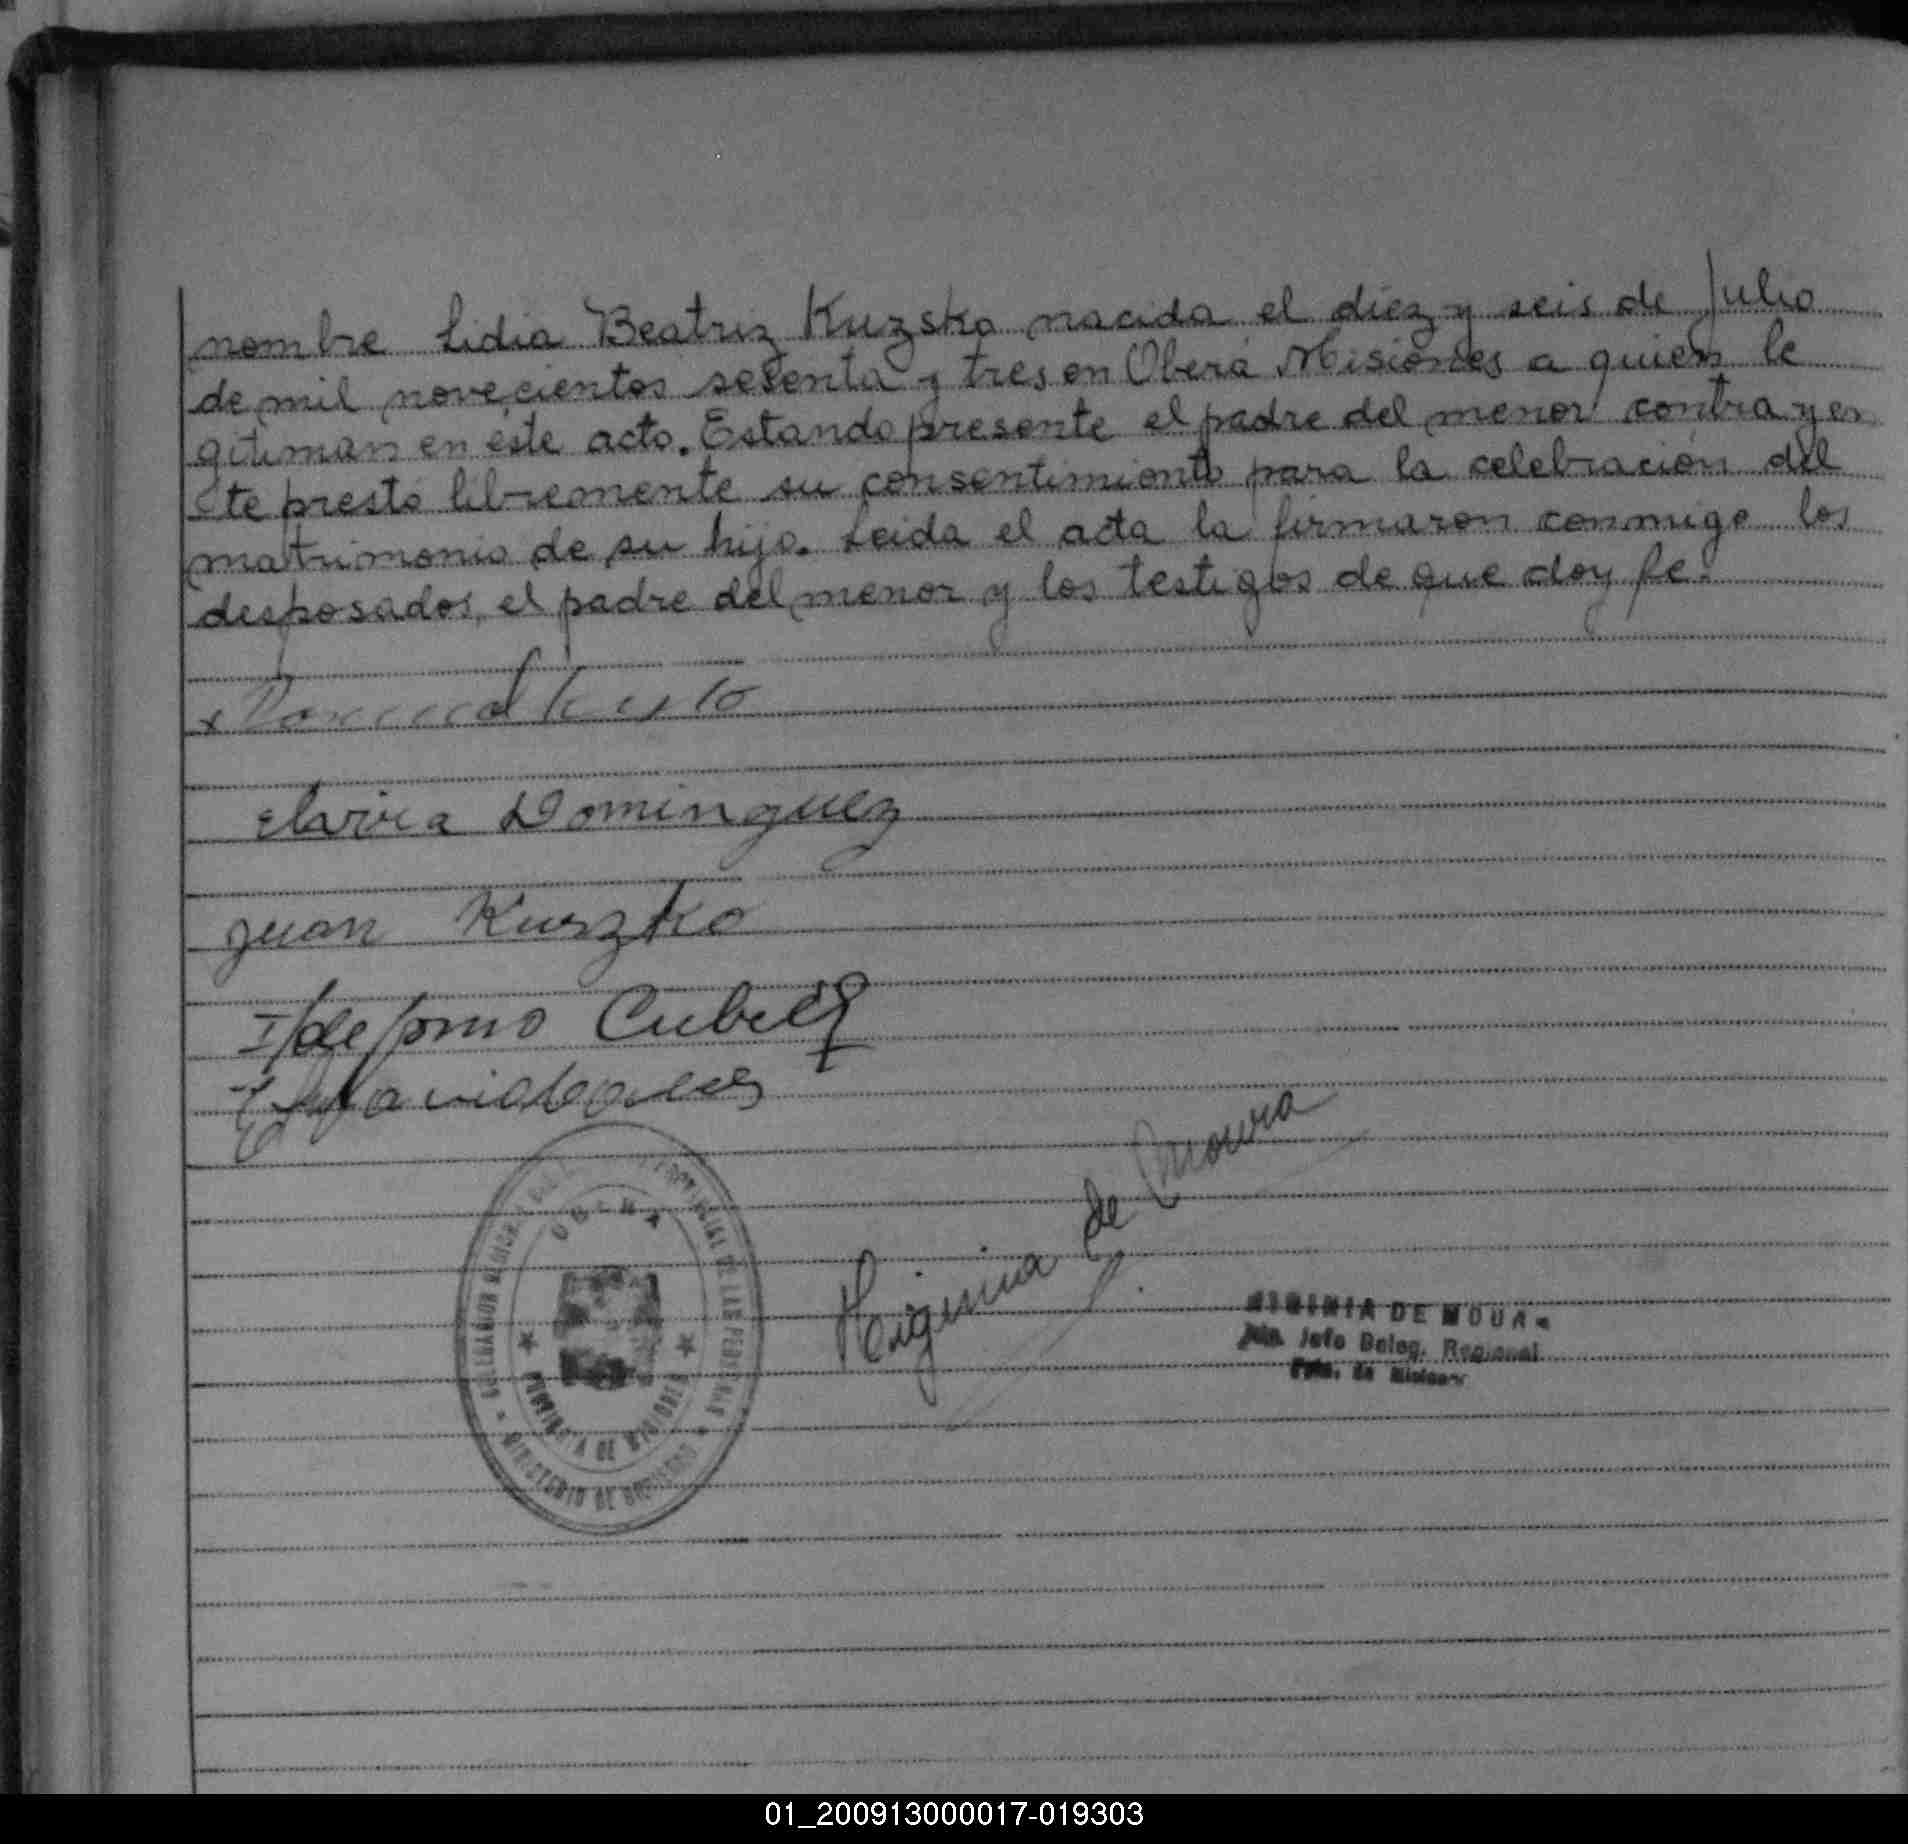 nombre Lidia Beatriz Kuzsko nacida el diez y seis de Julio
de mil novecientos sesenta y tres en Oberá Misiones a quien le
gitiman en éste acto. Estando presente el padre del menor contrayen
te prestó libremente su consentimiento para la celebración del
matrimonio de su hijo. Leida el acta la firmaron conmigo los
desposados, el padre del menor y los testigos de que doy fe.
Elvira Dominguez
Juan Kuszko
Ildefonso
Higinia de Moura
OBERA
PROVINCIA DE MISIONES
MINISTERIO DE GOBIERNO
DE LAS PERSONAS
HIGINIA DE MOURA
Jefe Deleg. Regional
01_200913000017-019303